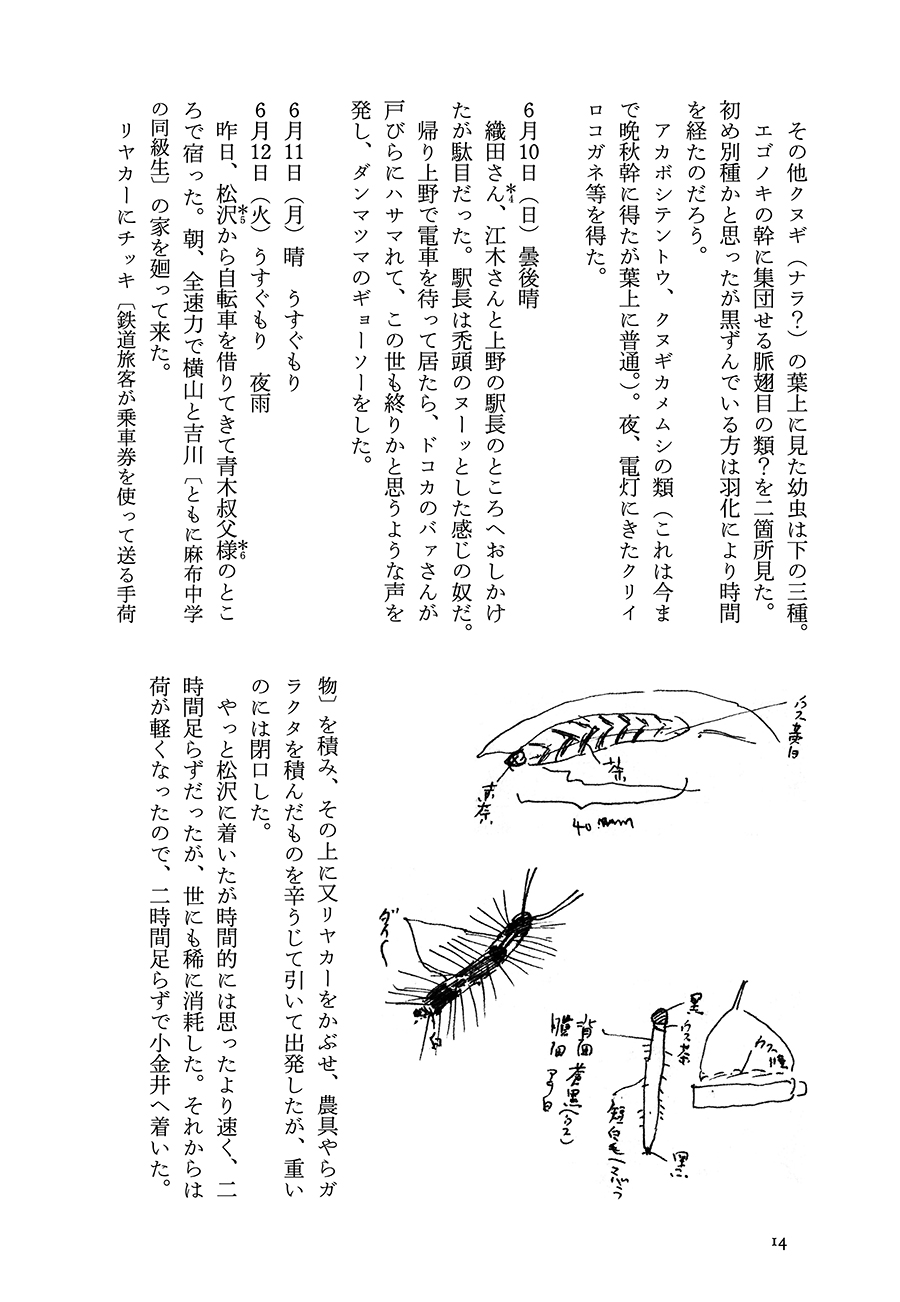 その他クヌギ（ナラ？）の葉上に見た幼虫は下の三種。
エゴノキの幹に集団せる脈翅目の類？を二箇所見た。
初め別種かと思ったが黒ずんでいる方は羽化により時間
を経たのだろう。
アカボシテントウ、クヌギカメムシの類（これは今ま
で晩秋幹に得たが葉上に普通。）。夜、電灯にきたクリイ
ロコガネ等を得た。
6月10日（日）曇後晴
織田さん、＊4江木さんと上野の駅長のところへおしかけ
たが駄目だった。駅長は禿頭のヌーッとした感じの奴だ。
帰り上野で電車を待って居たら、ドコカのバァさんが
戸びらにハサマれて、この世も終りかと思うような声を
発し、ダンマツマのギョーソーをした。
6月11日（月）晴　うすぐもり
6月12日（火）うすぐもり　夜雨
昨日、松沢＊5から自転車を借りてきて青木叔父様＊6のとこ
ろで宿った。朝、全速力で横山と吉川〔ともに麻布中学
の同級生〕の家を廻って来た。
リヤカーにチッキ〔鉄道旅客が乗車券を使って送る手荷
物〕を積み、その上に又リヤカーをかぶせ、農具やらガ
ラクタを積んだものを辛うじて引いて出発したが、重い
のには閉口した。
やっと松沢に着いたが時間的には思ったより速く、二
時間足らずだったが、世にも稀に消耗した。それからは
荷が軽くなったので、二時間足らずで小金井へ着いた。
茶
40mm
白
黒
ウス茶
黒
14